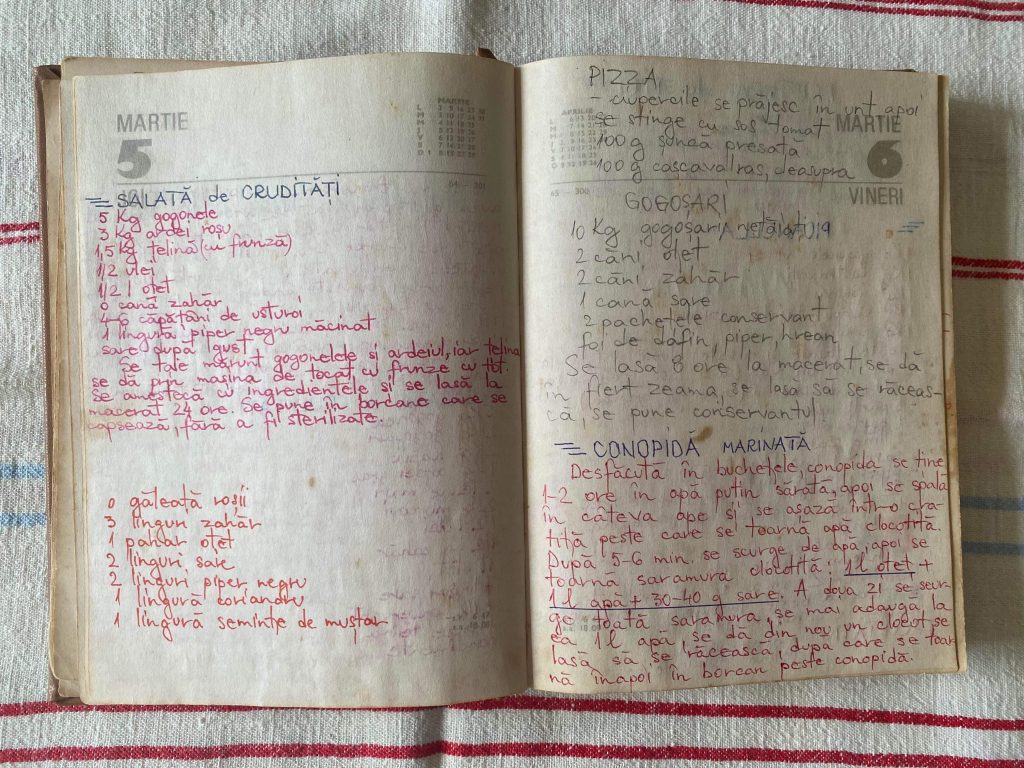 MARTIE
5
JOI
MARTIE
64 - 301
SALATĂ de CRUDITĂȚI
5 Kg gogonele
3 Kg ardei roșu
1,5 Kg țelină (cu frunză)
1/2 ulei
1/2 l oțet
o cană zahăr
4-6 căpățâni de usturoi
1 lingură piper negru măcinat
sare după gust
Se taie mărunt gogonelele și ardeiul, iar țelina
se dă prin mașina de tocat cu frunze cu tot.
Se amestecă cu ingredientele și se lasă la
macerat 24 ore. Se pune în borcane care se
capsează, fără a fi sterilizate.
o găleată roșii
3 linguri zahăr
1 pahar oțet
2 linguri sare
2 linguri piper negru
1 lingură coriandru
1 lingură semințe de muștar
PIZZA
- ciupercile se prăjesc în unt apoi
se stinge cu sos tomat
100 g șuncă presată
100 g cașcaval ras, deasupra
APRILIE
MARTIE
6
65 - 300
VINERI
GOGOȘARI
10 Kg gogoșari netăiați
2 căni oțet
2 căni zahăr
1 cană sare
2 pachețele conservant
foi de dafin, piper, hrean
Se lasă 8 ore la macerat, se dă
în fiert zeama, se lasă să se răceas-
că, se pune conservantul.
CONOPIDĂ MARINATĂ
Desfăcută în buchețele, conopida se ține
1-2 ore în apă puțin sărată, apoi se spală
în câteva ape și se așază într-o cra-
tiță peste care se toarnă apă clocotită.
După 5-6 min. se scurge de apă, apoi se
toarnă saramura clocotită: 1 l oțet +
1 l apă + 30-40 g sare. A doua zi se scur-
ge toată saramura, se mai adaugă la
ea 1 l apă, se dă din nou un clocot, se
lasă să se răcească, după care se toar
nă înapoi în borcan peste conopidă.